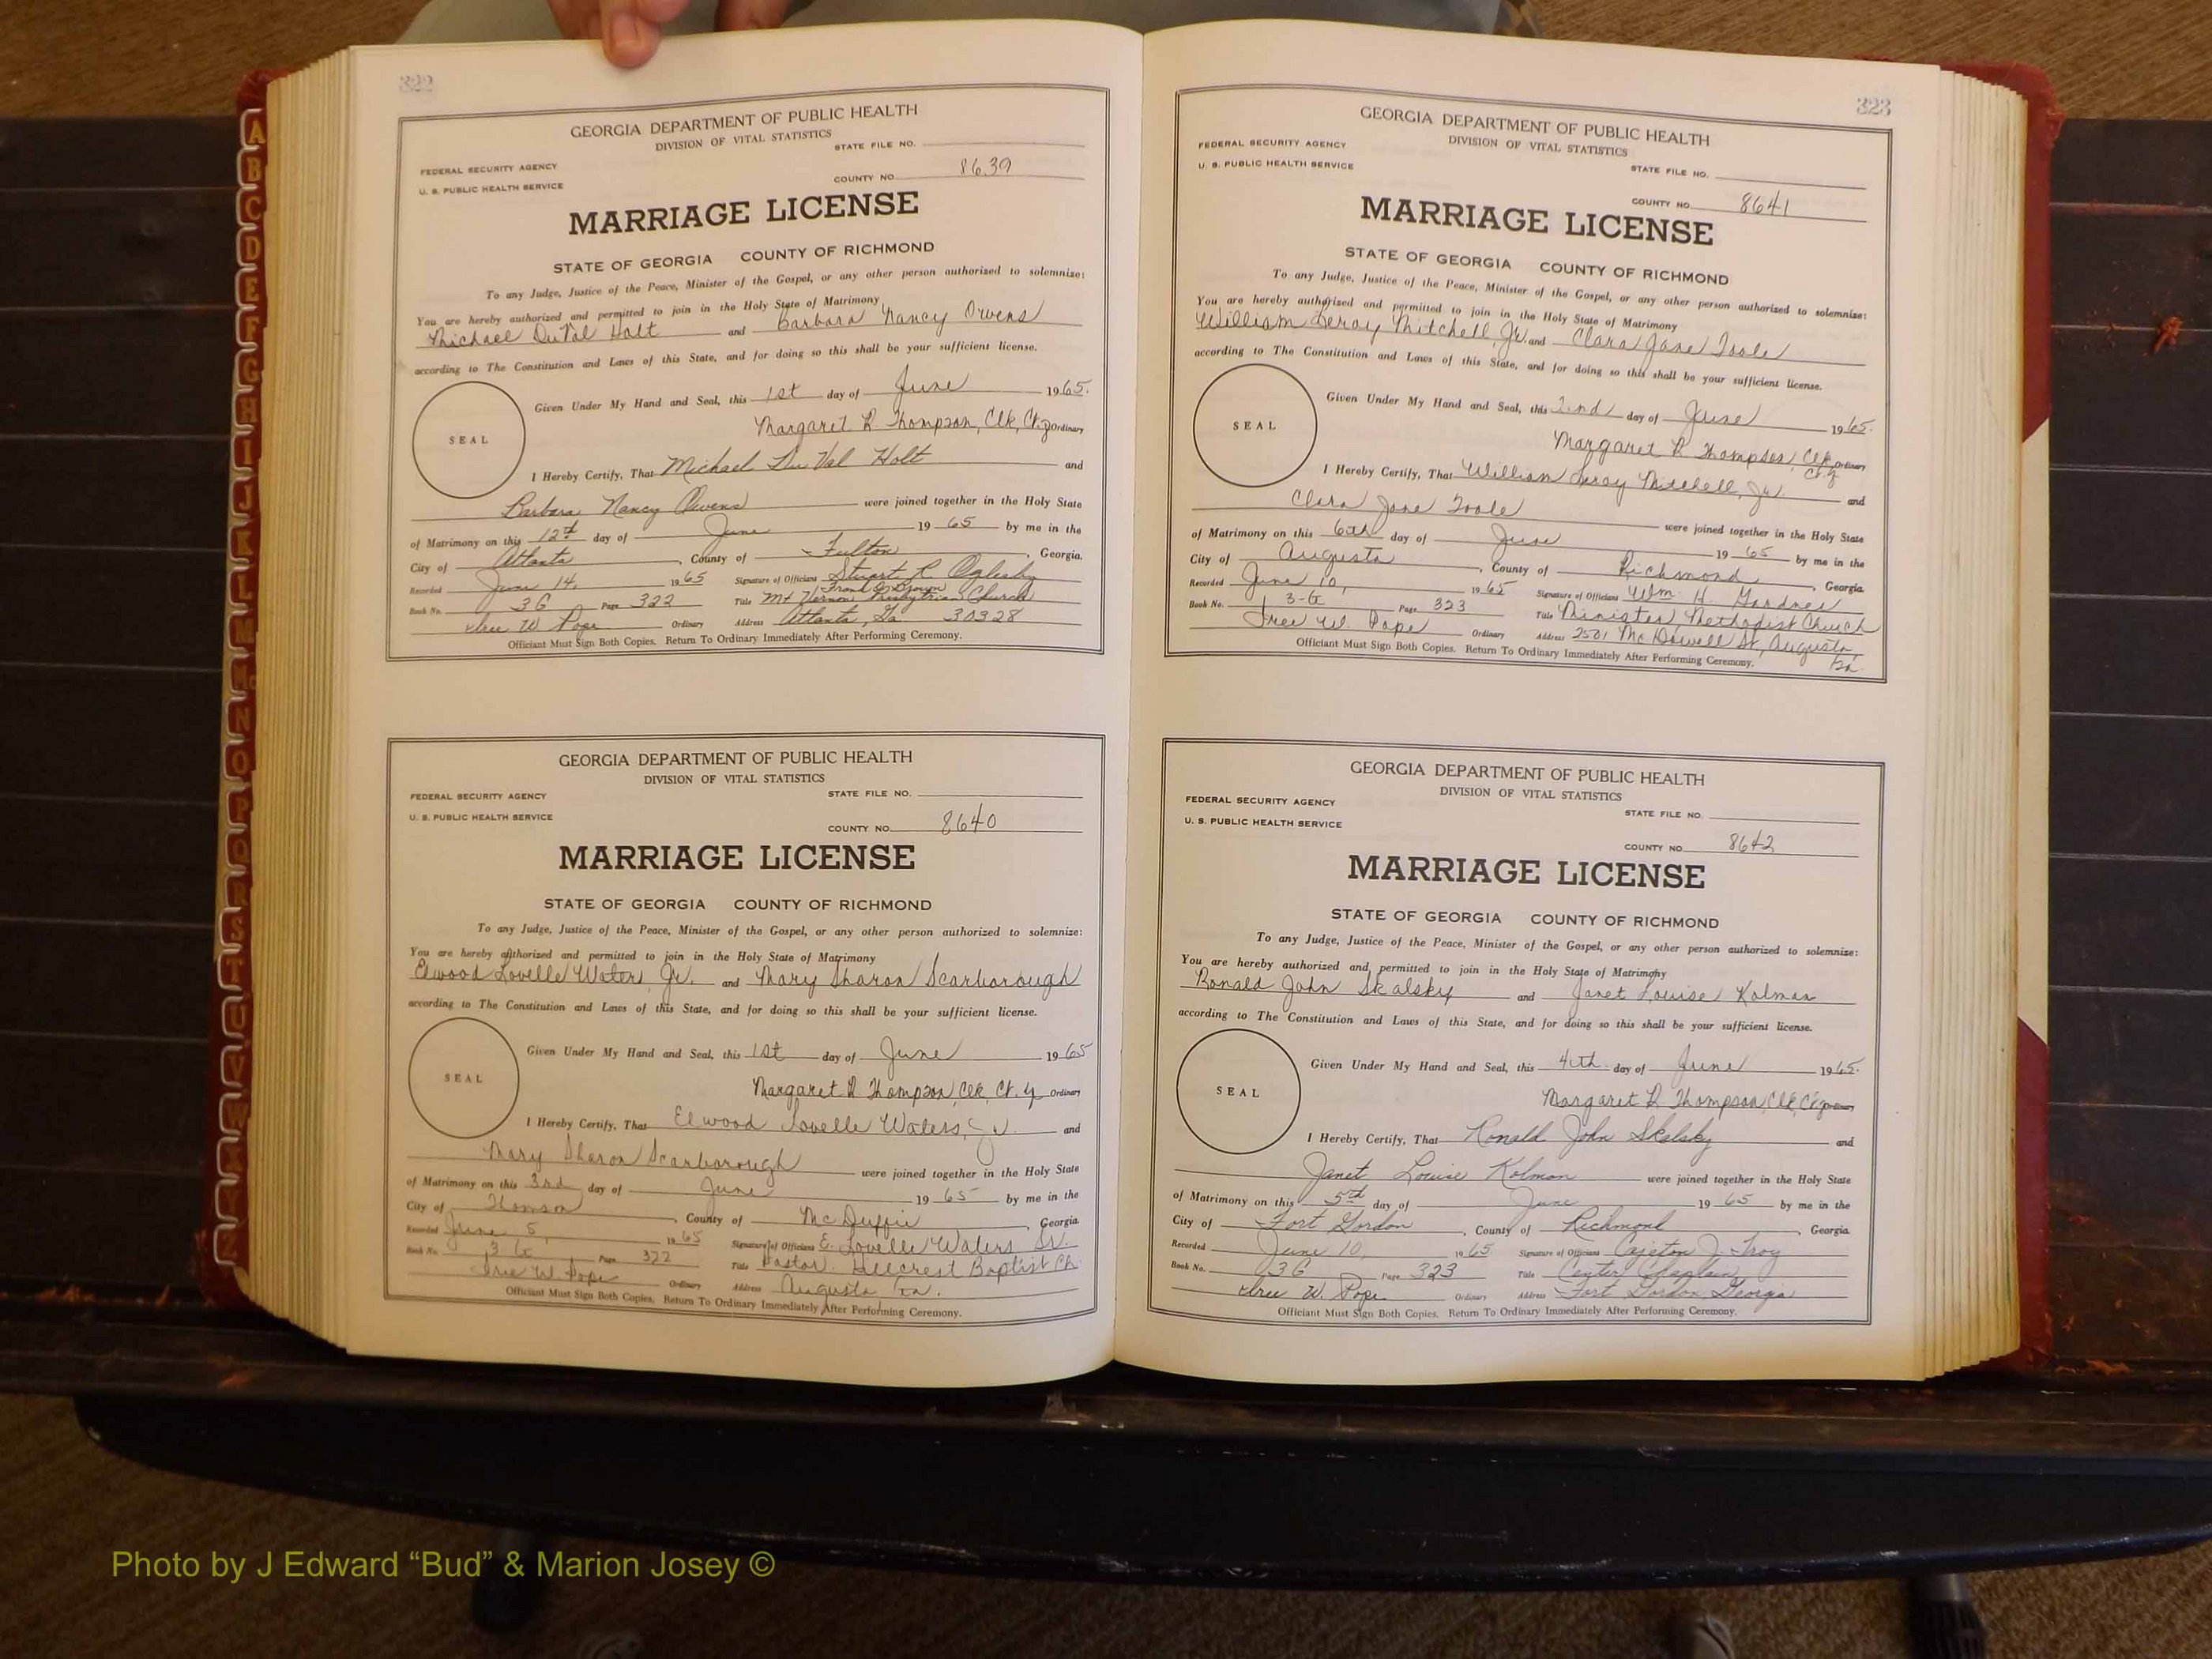 322
GEORGIA DEPARTMENT OF PUBLIC HEALTH
DIVISION OF VITAL STATISTICS
STATE FILE NO.
FEDERAL SECURITY AGENCY
U. S. PUBLIC HEALTH SERVICE
COUNTY NO. 8639
MARRIAGE LICENSE
STATE OF GEORGIA COUNTY OF RICHMOND
To any Judge, Justice of the Peace, Minister of the Gospel, or any other person authorized to solemnize:
You are hereby authorized and permitted to join in the Holy State of Matrimony
Michael DuVal Holt and Barbara Nancy Owens
according to The Constitution and Laws of this State, and for doing so this shall be your sufficient license.
SEAL
Given Under My Hand and Seal, this 1st day of June 1965.
Margaret R. Thompson, Clk, Ct. Ordinary
I Hereby Certify, That Michael Du Val Holt and
Barbara Nancy Owens were joined together in the Holy State
of Matrimony on this 12th day of June 1965 by me in the
City of Atlanta, County of Fulton, Georgia.
Recorded June 14, 1965 Signature of Officiant Stuart R. Oglesby
Book No. 3G Page 322 Title Mt Vernon Presbytrian Church
W. Pope Ordinary Address Atlanta, Ga 30328
Officiant Must Sign Both Copies. Return To Ordinary Immediately After Performing Ceremony.
GEORGIA DEPARTMENT OF PUBLIC HEALTH
DIVISION OF VITAL STATISTICS
STATE FILE NO.
FEDERAL SECURITY AGENCY
U. S. PUBLIC HEALTH SERVICE
COUNTY NO. 8640
MARRIAGE LICENSE
STATE OF GEORGIA COUNTY OF RICHMOND
To any Judge, Justice of the Peace, Minister of the Gospel, or any other person authorized to solemnize:
You are hereby authorized and permitted to join in the Holy State of Matrimony
Elwood Lovelle Waters, Jr. and Mary Sharon Scarborough
according to The Constitution and Laws of this State, and for doing so this shall be your sufficient license.
SEAL
Given Under My Hand and Seal, this 1st day of June 1965
Margaret R Thompson, Clk, Ct. Ordinary
I Hereby Certify, That Elwood Lovelle Waters, Jr. and
Mary Sharon Scarborough were joined together in the Holy State
of Matrimony on this 3rd day of June 1965 by me in the
City of Thomson, County of McDuffie, Georgia
Recorded June 5, 1965 Signature of Officiant E. Lovelle Waters Sr.
Book No. 3 G Page 322 Title Pastor. Hillcrest Baptist Ch.
W. Pope Ordinary Address Augusta Ga.
Officiant Must Sign Both Copies. Return To Ordinary Immediately After Performing Ceremony.
323
GEORGIA DEPARTMENT OF PUBLIC HEALTH
DIVISION OF VITAL STATISTICS
FEDERAL SECURITY AGENCY
U. S. PUBLIC HEALTH SERVICE
STATE FILE NO.
COUNTY NO. 8641
MARRIAGE LICENSE
STATE OF GEORGIA COUNTY OF RICHMOND
To any Judge, Justice of the Peace, Minister of the Gospel, or any other person authorized to solemnize:
You are hereby authorized and permitted to join in the Holy State of Matrimony
William Leroy Mitchell, Jr. and Clara Jane Toole
according to The Constitution and Laws of this State, and for doing so this shall be your sufficient license.
SEAL
Given Under My Hand and Seal, this 2nd day of June 1965.
Margaret R. Thompson, Clk, Ct. Ordinary
I Hereby Certify, That William Leroy Mitchell, Jr. and
Clara Jane Toole were joined together in the Holy State
of Matrimony on this 6th day of June 1965 by me in the
City of Augusta, County of Richmond, Georgia.
Recorded June 10, 1965 Signature of Officiant Wm. H. Gardner
Book No. 3-G Page 323 Title Minister, Methodist Church
W. Pope Ordinary Address 2501 McDowell St., Augusta, Ga.
Officiant Must Sign Both Copies. Return To Ordinary Immediately After Performing Ceremony.
GEORGIA DEPARTMENT OF PUBLIC HEALTH
DIVISION OF VITAL STATISTICS
FEDERAL SECURITY AGENCY
U. S. PUBLIC HEALTH SERVICE
STATE FILE NO.
COUNTY NO. 8642
MARRIAGE LICENSE
STATE OF GEORGIA COUNTY OF RICHMOND
To any Judge, Justice of the Peace, Minister of the Gospel, or any other person authorized to solemnize:
You are hereby authorized and permitted to join in the Holy State of Matrimony
Ronald John Skalsky and Janet Louise Kolman
according to The Constitution and Laws of this State, and for doing so this shall be your sufficient license.
SEAL
Given Under My Hand and Seal, this 4th day of June 1965.
Margaret R. Thompson, Clk, Ct. Ordinary
I Hereby Certify, That Ronald John Skalsky and
Janet Louise Kolmon were joined together in the Holy State
of Matrimony on this 5th day of June 1965 by me in the
City of Fort Gordon, County of Richmond, Georgia
Recorded June 10, 1965 Signature of Officiant Cajeton J. Troy
Book No. 3G Page 323 Title Center Chaplain
W. Pope Ordinary Address Fort Gordon, Georgia
Officiant Must Sign Both Copies. Return To Ordinary Immediately After Performing Ceremony.
A
B
C
D
E
F
G
H
I
J
K
L
M
Mc
N
O
P
Q
R
S
T
U
V
W
Z
Photo by J Edward “Bud” & Marion Josey ©